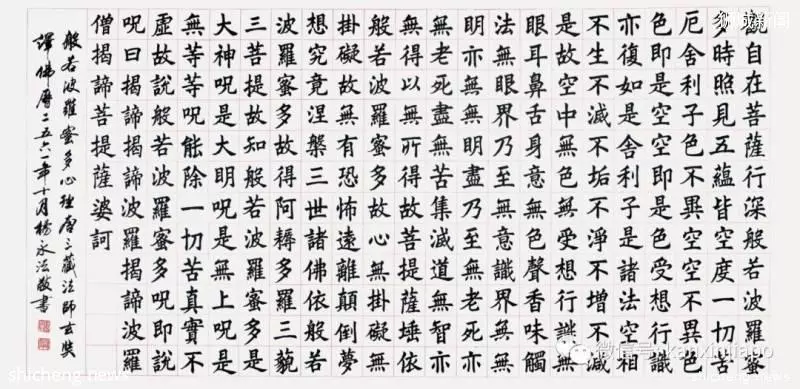 觀自在菩薩行深般若波羅蜜
多時照見五蘊皆空度一切苦
厄舍利子色不異空空不異色
色即是空空即是色受想行識
亦復如是舍利子是諸法空相
不生不滅不垢不淨不增不減
是故空中無色無受想行識無
眼耳鼻舌身意無色聲香味觸
法無眼界乃至無意識界無無
明亦無無明盡乃至無老死亦
無老死盡無苦集滅道無智亦
無得以無所得故菩提薩埵依
般若波羅蜜多故心無掛礙無
掛礙故無有恐怖遠離顛倒夢
想究竟涅槃三世諸佛依般若
波羅蜜多故得阿耨多羅三藐
三菩提故知般若波羅蜜多是
大神呪是大明呪是無上呪是
無等等呪能除一切苦真實不
虛故說般若波羅蜜多呪即說
呪曰揭諦揭諦波羅揭諦波羅
僧揭諦菩提薩婆訶
般若波羅蜜多心經唐三藏法師玄奘
譯佛曆二五六一年十月楊永法敬書
狮城新闻
微信号: kanxinjiapo
shicheng.news
shicheng.news